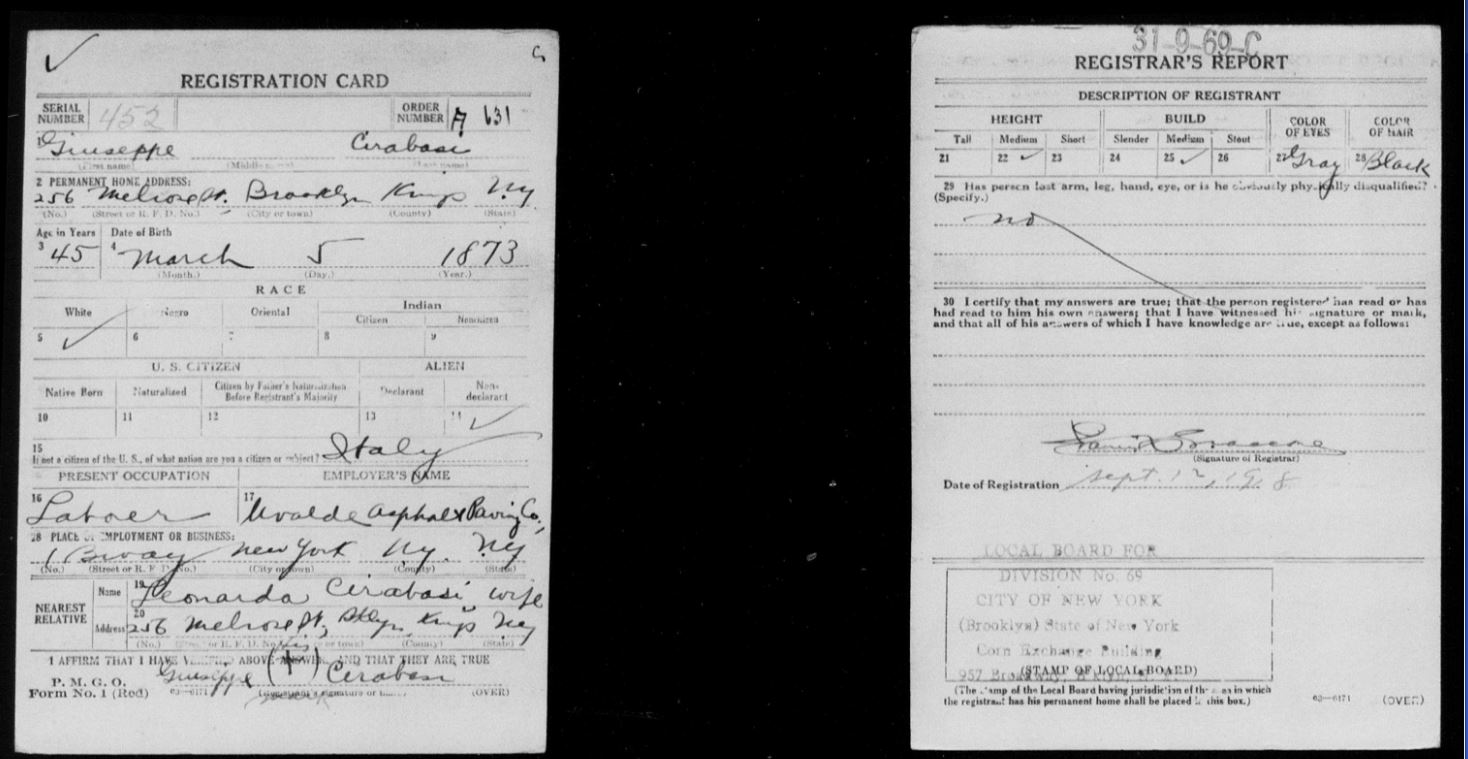 REGISTRATION CARD
SERIAL NUMBER 452
ORDER NUMBER A 631
1 Giuseppe Cirabasi
(First name) (Middle name) (Last name)
2 PERMANENT HOME ADDRESS:
256 Melrose St. Brooklyn Kings Ny
(No.) (Street or R. F. D. No.) (City or town) (County) (State)
Age in Years Date of Birth
3 45 4 March 5 1873
(Month.) (Day.) (Year.)
RACE
White Negro Oriental Indian
Citizen Noncitizen
5 ✓ 6 7 8 9
U. S. CITIZEN ALIEN
Native Born Naturalized Citizen by Father's Naturalization Before Registrant's Majority Declarant Non-declarant
10 11 12 13 14 ✓
15 If not a citizen of the U. S., of what nation are you a citizen or subject? Italy
PRESENT OCCUPATION EMPLOYER'S NAME
16 Laborer 17 Uvalde Asphalt Paving Co.,
18 PLACE OF EMPLOYMENT OR BUSINESS:
1 Bway New York Ny. Ny
(No.) (Street or R. F. D. No.) (City or town) (County) (State)
NEAREST RELATIVE
Name 19 Leonarda Cirabasi wife
Address 20 256 Melrose St, Bklyn Kings Ny
(No.) (Street or R. F. D. No.) (City or town) (County) (State)
I AFFIRM THAT I HAVE VERIFIED ABOVE ANSWERS AND THAT THEY ARE TRUE
P. M. G. O.
Form No. 1 (Red) 03—6171
his
Giuseppe (+) Cirabasi
mark
(Registrant's signature or mark) (OVER)
31-9-69-C
REGISTRAR'S REPORT
DESCRIPTION OF REGISTRANT
HEIGHT BUILD COLOR OF EYES COLOR OF HAIR
Tall Medium Short Slender Medium Stout
21 22 ✓ 23 24 25 ✓ 26 27 Gray 28 Black
29 Has person lost arm, leg, hand, eye, or is he obviously physically disqualified?
(Specify.)
no
30 I certify that my answers are true; that the person registered has read or has
had read to him his own answers; that I have witnessed his signature or mark,
and that all of his answers of which I have knowledge are true, except as follows:
(Signature of Registrar)
Date of Registration Sept. 12, 1918
LOCAL BOARD FOR
DIVISION No. 69
CITY OF NEW YORK
(Brooklyn) State of New York
Corn Exchange Building
957 Broadway,
(STAMP OF LOCAL BOARD)
(The stamp of the Local Board having jurisdiction of the area in which
the registrant has his permanent home shall be placed in this box.)
03—6171 (OVER)